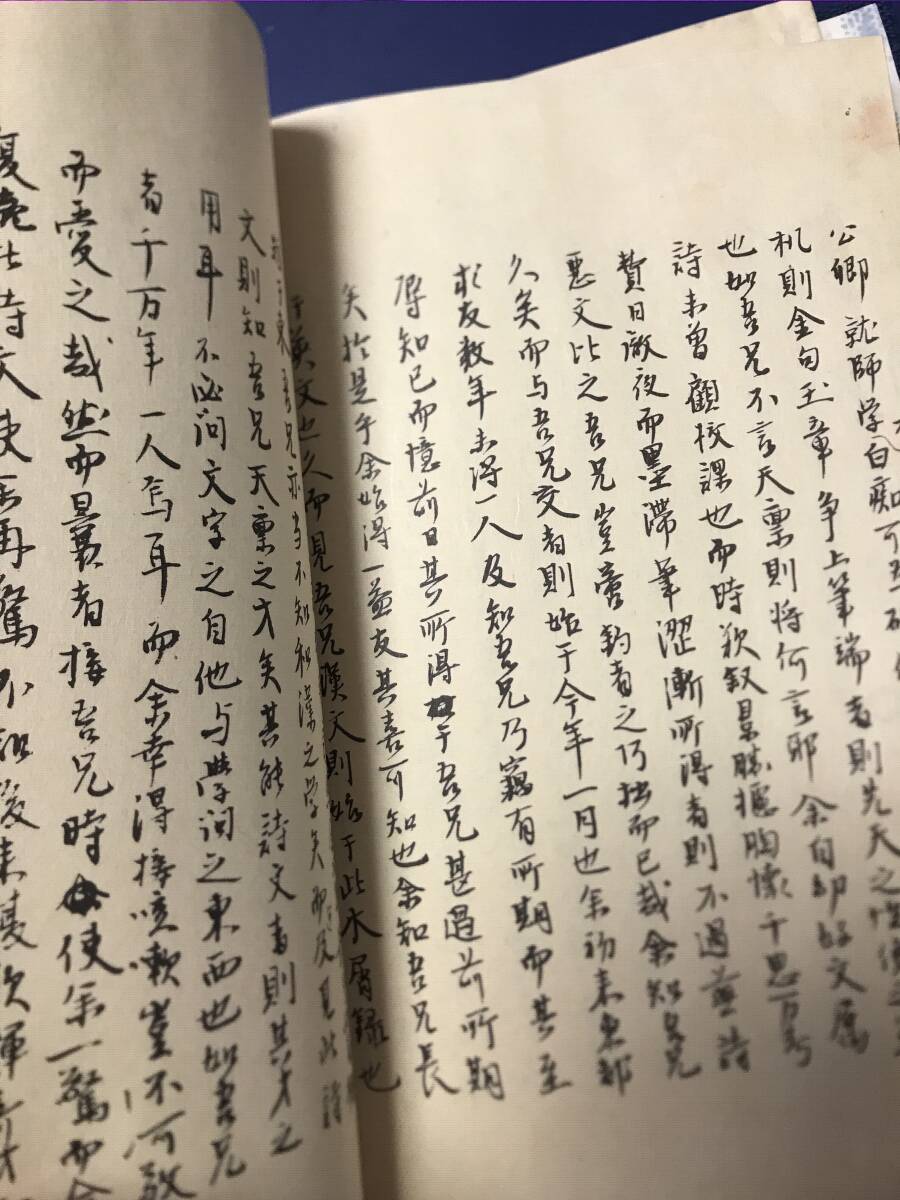 公卿就師学白痴可
机則金句玉章争上筆端者則先天之
也如吾兄不言天稟則将何言邪余自幼好文属
詩未曽顧校課也而時欲叙景勝攄胸懐千思万考
費日徹夜而墨滞筆澀漸所得者則不過蕪詩
悪文比之吾兄豈啻鈞者之巧拙而已哉余知吾兄
久矣而与吾兄交者則始于今年一月也余初来東都
求友数年未得一人及知吾兄乃竊有所期而其至
辱知已而憶前日其所得于吾兄甚過前所期
矣於是乎余始得一益友其喜可知也余知吾兄長
于英文也久而見吾兄漢文則始于此木屑録也
于東吾兄亦当不知和漢之学矣而及見此詩
文則知吾兄天稟之才矣其能詩文者則其才之
用耳不必問文字之自他与学问之東西也如吾兄
者千万年一人焉耳而余幸得接咳嗽豈不可敬
而愛之哉然而曩者接吾兄時使余一驚而今
復此詩文使吾再驚不知後来